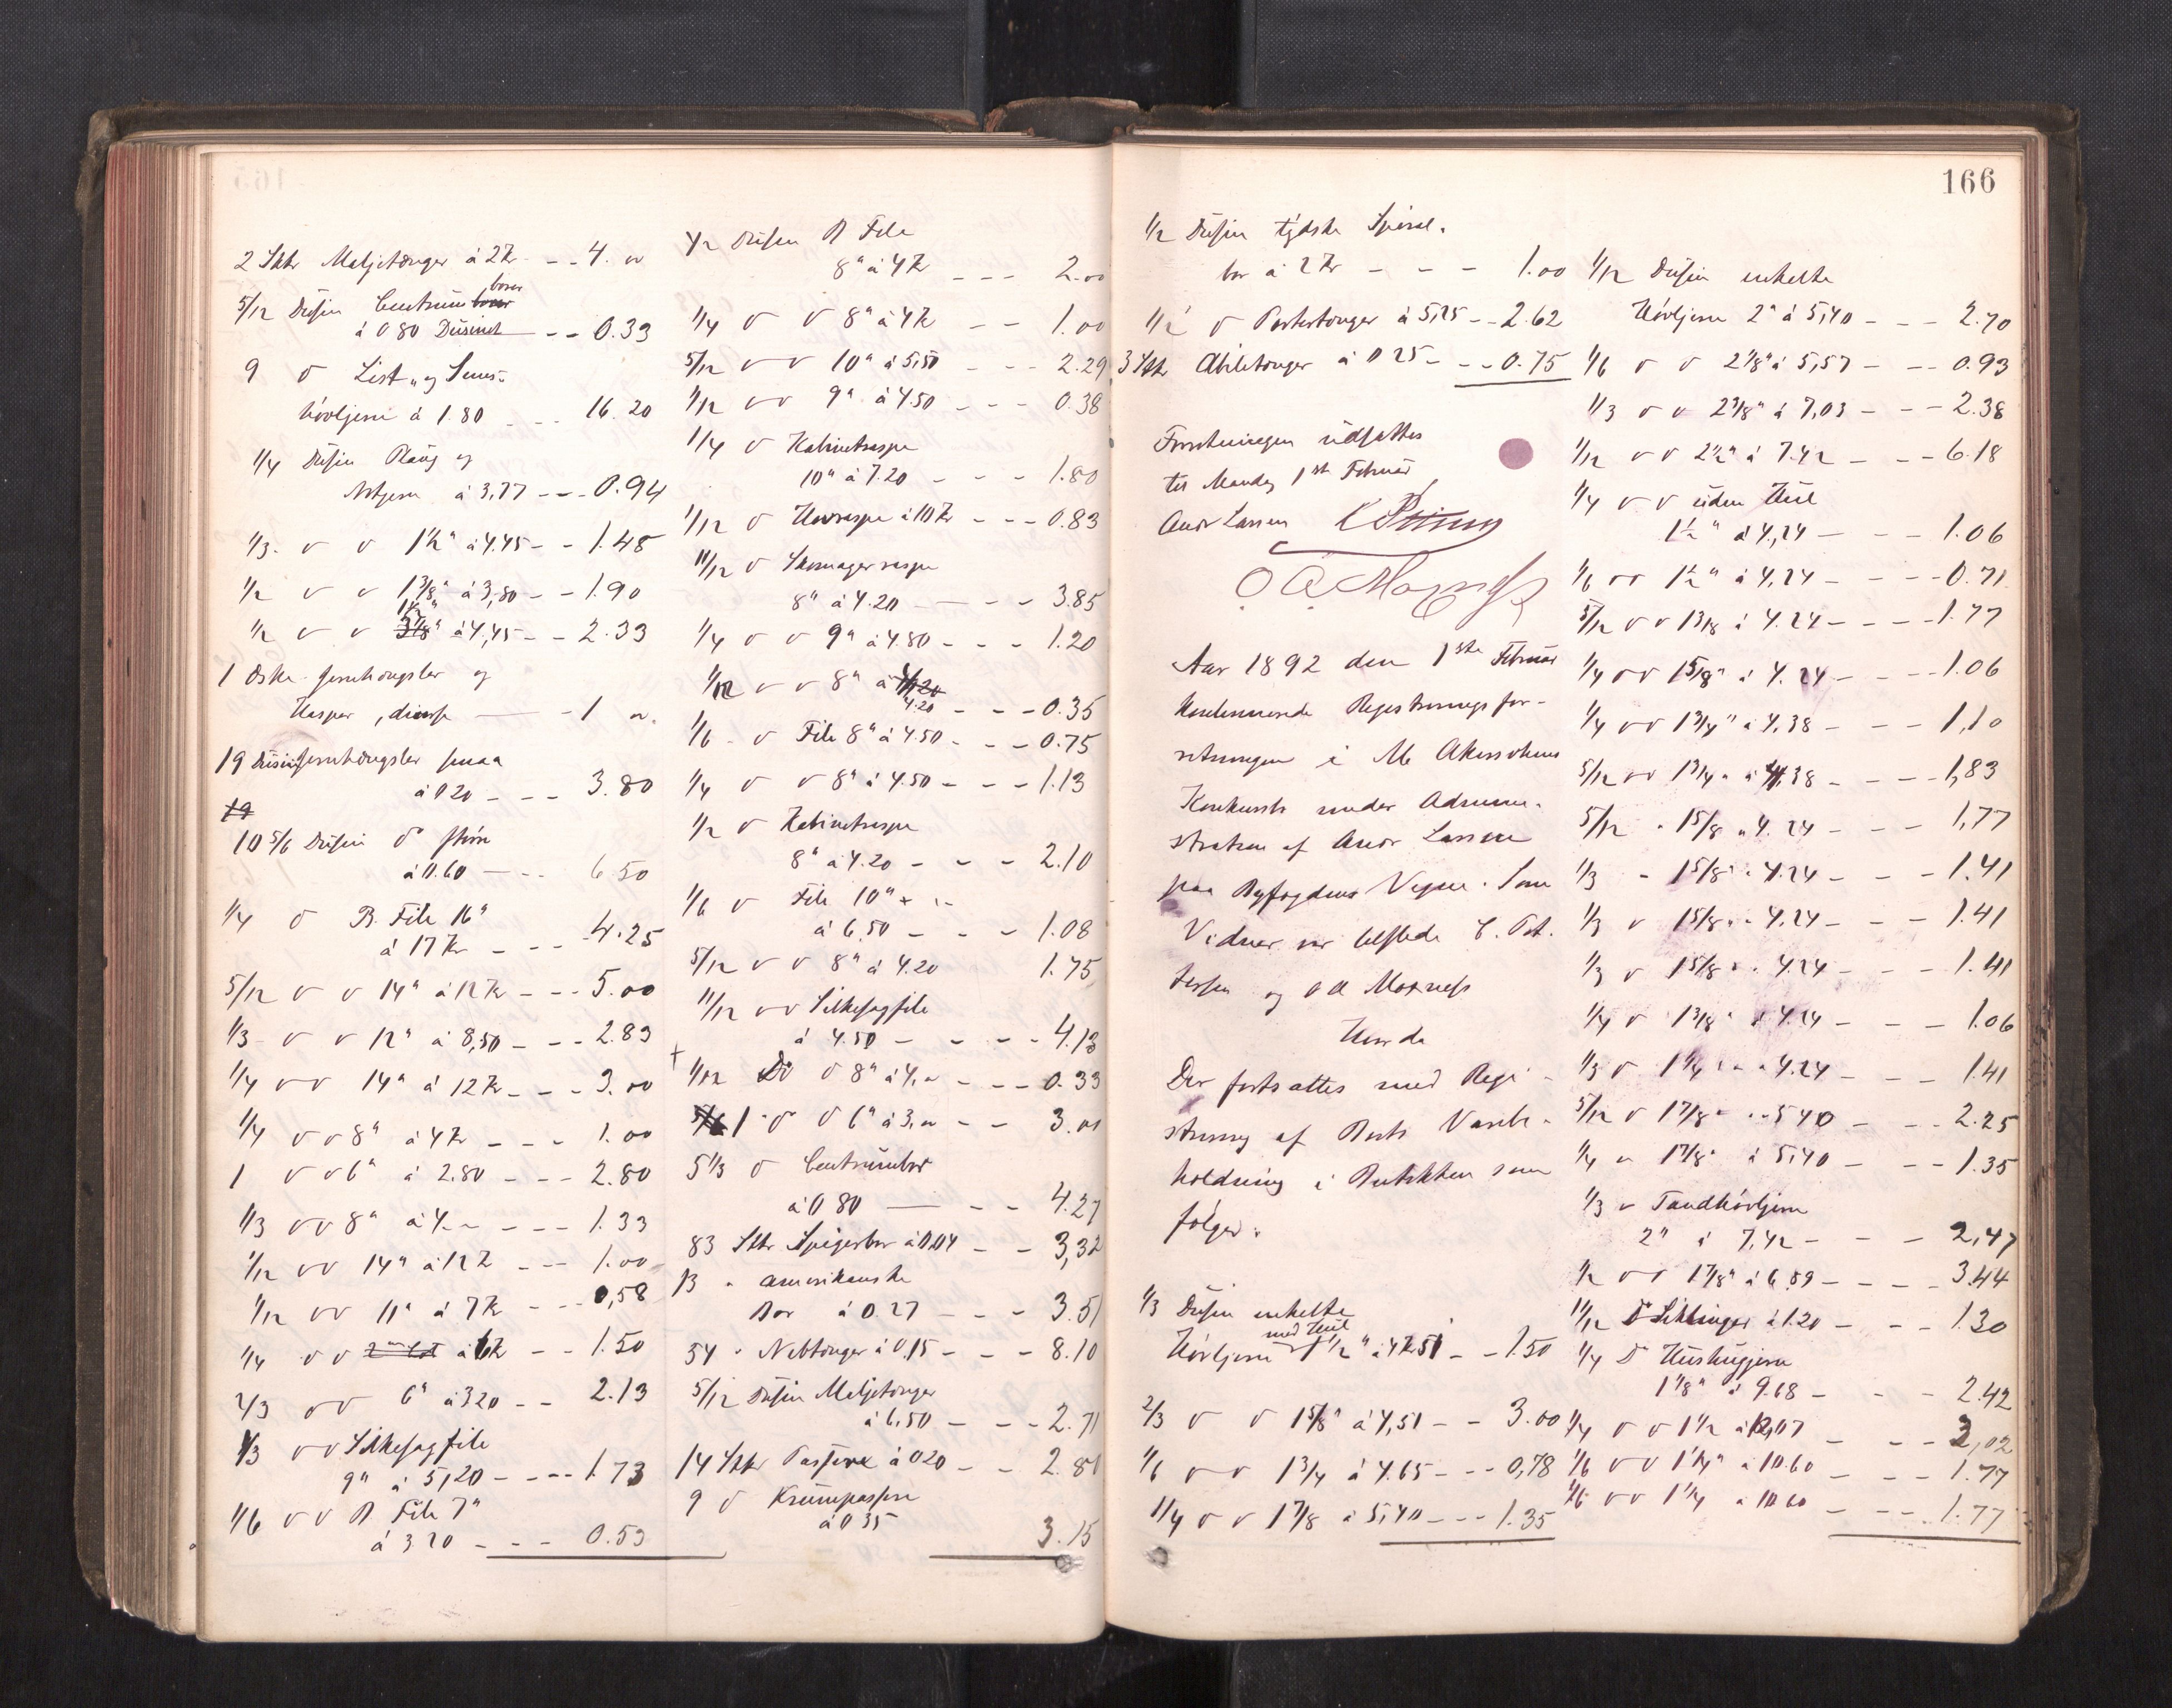 2 Stkr Maljetænger à 2 Kr - - 4. "
borer
5/12 Dusin Centrum borer
à 0 80 Dusinet - - 0.33
9 do List- og Sims-
høvljern à 1.80 - - - 16.20
1/4 Dusin Pløug og
Notjern à 3,77 - - - 0.94
1/3 - v v 1 1/2" à 4.45 - - 1.48
1/2 v v 1 3/8" à 3,80 - - 1.90
1/2 v v à 4,45 - - 2.33
1 Æske og
Hasper, diverse - 1 ".
19 Dusin smaa
à 0 20 - - - 3.80
19
10 5/6 Dusin do større
à 0.60 - - - 6 50
1/4 do B. File 16"
à 17 Kr - - - 4.25
5/12 v v 14" à 12 Kr - - - 5.00
1/3 - v v 12" à 8,50 - - - 2.83
1/4 v v 14" à 12 Kr - - - 3.00
1/4 v v 8" à 4 Kr - - - 1.00
1 v v 6" à 2.80 - - - 2.80
1/3 v v 8" à 4. - - - - 1.33
1/12 v v 14" à 12 K - - - 1.00
1/12 v v 11" à 7 Kr - - - 0,58
1/4 v v à 6 Kr - - 1.50
2/3 v v 6" à 320 - - 2.13
1/3 v v Stiksagfile
9" à 5,20 - - - - 1.73
1/6 v v B File 7"
à 3 20 - - - 0.53
1/2 Dusin B File
8" à 4 Kr - - - 2.00
1/4 v v 8" à 4 K - - 1.00
5/12 v v 10" à 5,50 - - - 2.29
1/12 v v 9" à 4.50 - - - 0.38
1/4 v Kabinetraspe
10" à 7.20 - - - 1.80
1/12 v Hovraspe à 10 Kr - - - 0.83
11/12 v Skomagerraspe
8" à 4.20 - - - 3.85
1/4 v v 9" à 4.80 - - - 1.20
1/12 v v 8" à 4,20
4.20 - - - 0.35
1/6 - v File 8" à 4.50 - - - 0.75
1/4 v v 8" à 4.50 - - - 1.13
1/2 v Kabinetraspe
8" à 4.20 - - - 2.10
1/6 v File 10"
à 6.50 - - - 1.08
5/12 v v 8" à 4.20 1.75
11/12 v v Stiksagfile
à 4.50 - - - - 4.13
+ 1/12 Do v 8" à 4. " - - - 0.33
5/6 1 - v v 6" à 3, " - - 3.00
5 1/3 v Centrumbor
à 0 80 - - 4.27
83 Stkr Spigerbor à 0,04 - - 3,32
13 " amerikanske
Bor à 0.27 - - - 3.51
54 " Nebtænger à 0,15 - - - 8.10
5/12 Dusin Maljetænger
à 6,50 - - - 2.71
14 Stkr Passere à 0 20 - - 2.80
9 v Krumpassere
à 0 35 3.15
166
1/2 Dusin tydske Spiral-
bor à 2 Kr - - - 1.00
1/2 v à 5,25 - - 2.62
3 Stkr à 0 25 - - - 0.75
Forretningen udsattes
til Mandag 1ste Februar
Andr Larsen
O A Moxness
Aar 1892 den 1ste Februar
kontinuerede Registreringsfor-
retningen i M Akersohns
Konkursbo under Admini-
stration af Andr Larsen
paa Byfogdens Vegne. Som
Vidner var tilstede C. Pet-
tersen og O A Moxness
Hvorda
Der fortsattes med Regi-
strering af Boets Varebe-
holdning i Butikken som
følger:
1/3 Dusin enkelte
med Hul
Høvljern 1 1/2" à 4 Kr 51 - - 1.50
2/3 v v 1 5/8" à 4,51 - - 3.00
1/6 v v 1 3/4 à 4.65 - - - 0,78
1/4 v v 1 7/8 à 5,40 - - - 1.35
1/12 Dusin enkelte
Høvljern 2" à 5,40 - - - 2.70
1/6 v v 2 1/8" à 5,57 - - - 0.93
1/3 v v 2 3/8" à 7,03 - - - 2.38
1/12 v v 2 1/2" à 7.42 - - - 6.18
1/4 v v uden Hul
1 1/2" à 4,24 - - - 1.06
1/6 v v 1 1/2" à 4,24 - - - - 0.71
5/12 v v 1 3/8 à 4.24 - - - - 1.77
1/4 v v 1 5/8" à 4.24 - - - - 1.06
1/4 v v 1 3/4" à 4,38 - - - 1,10
5/12 v v 1 3/4 " à 4,38 - - - - 1,83
5/12 " 1 5/8 " 4.24 - - - 1,77
1/3 " 1 5/8" " 4.24 - - - 1.41
1/3 v 1 5/8 " " 4.24 - - - 1.41
1/3 v 1 5/8 " " 4.24 - - - 1.41
1/4 v 1 3/8" à 4.24 - - - 1.06
1/3 v 1 1/4 " " 4.24 - - - 1.41
5/12 v 1 7/8 " " 5 40 - - - 2.25
1/4 " 1 7/8" à 5,40 - - - 1.35
1/3 v Tandhøvljern
2" à 7,42 - - - 2,47
1/2 v v 1 7/8" à 6.89 - - - - 3.44
11/12 Do à 1.20 - - - 1.30
1/4 Do
1 1/8" à 9.68 - - - 2.42
1/4 v v 1 1/2 à 12,07 - - - 3,02
1/6 v v 1 1/4" à 10.60 - - - 1.77
1/6 v v 1 1/4 à 10 60 - - - 1.77